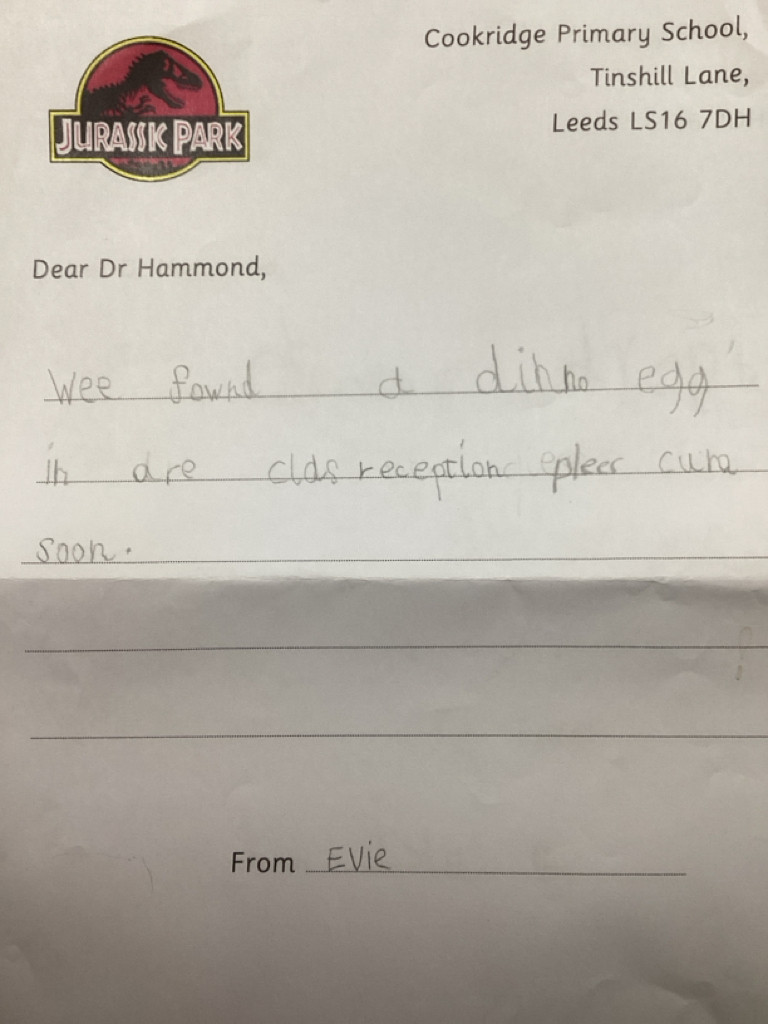 Cookridge Primary School,
Tinshill Lane,
Leeds LS16 7DH
JURASSIC PARK
Dear Dr Hammond,
Wee fownd a dinno egg
in are clas reception pleec cum
soon.
From Evie